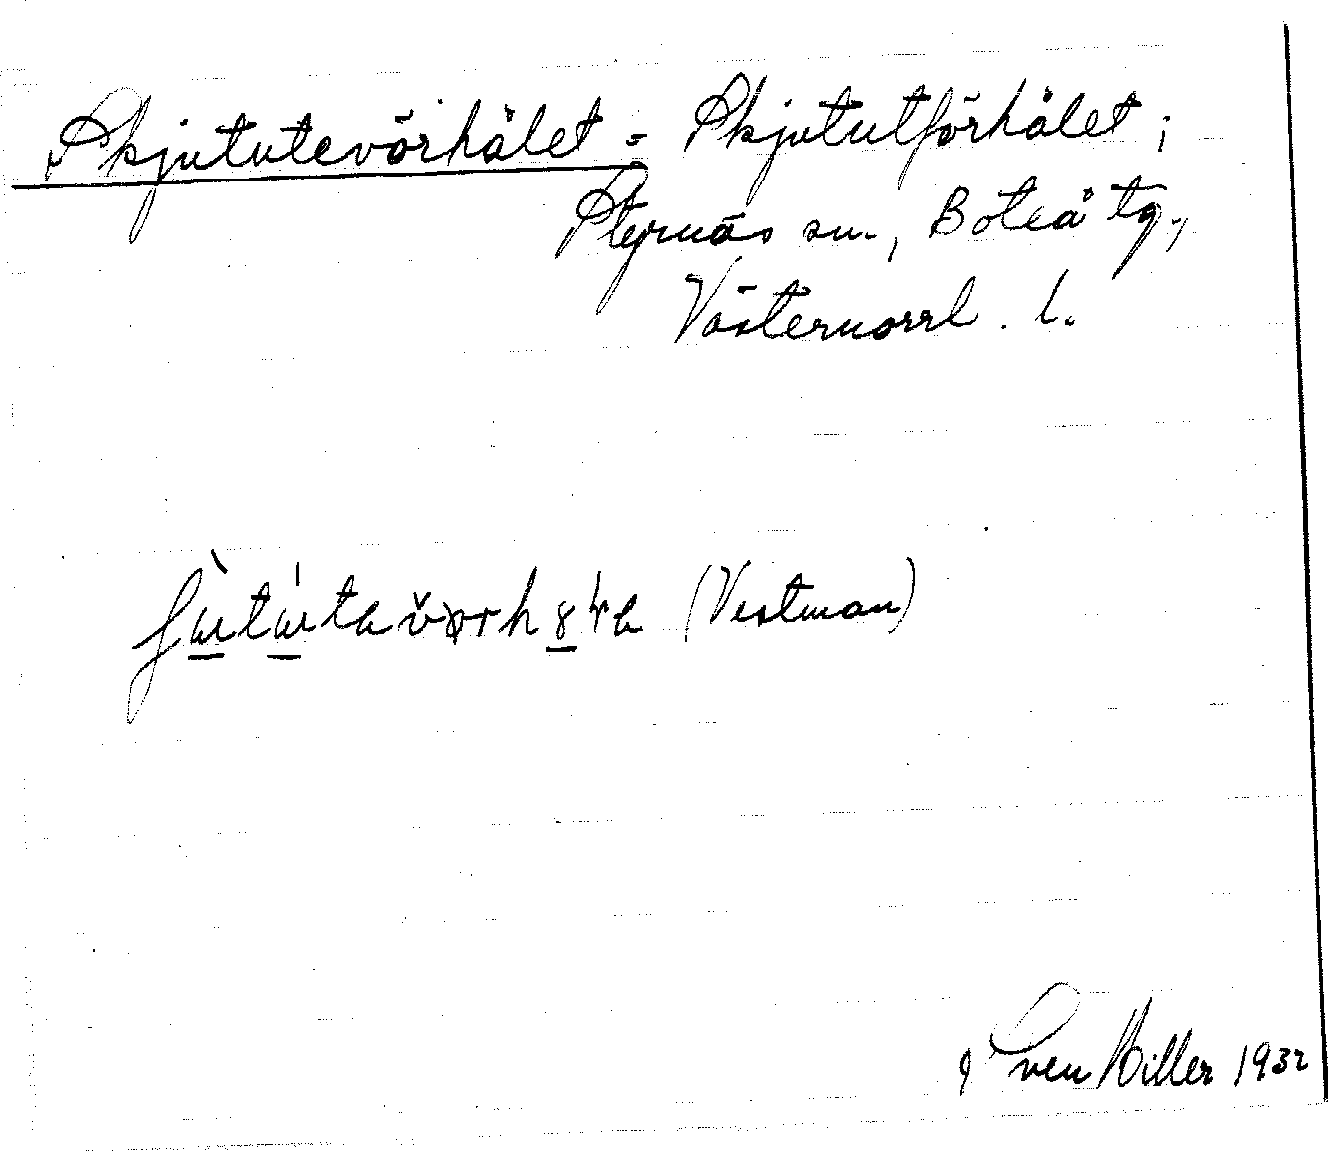 Skjututevörhålet = Skjututförhålet;
Styrnäs sn., Boteå tg.,
Västernorrl. l.
(Vestman)
Sven Hiller 1932